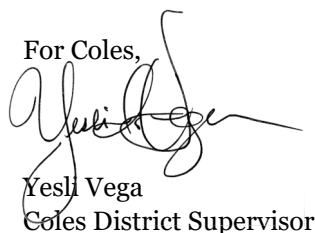 For Coles,
Yesli Vega
Yesli Vega
Coles District Supervisor